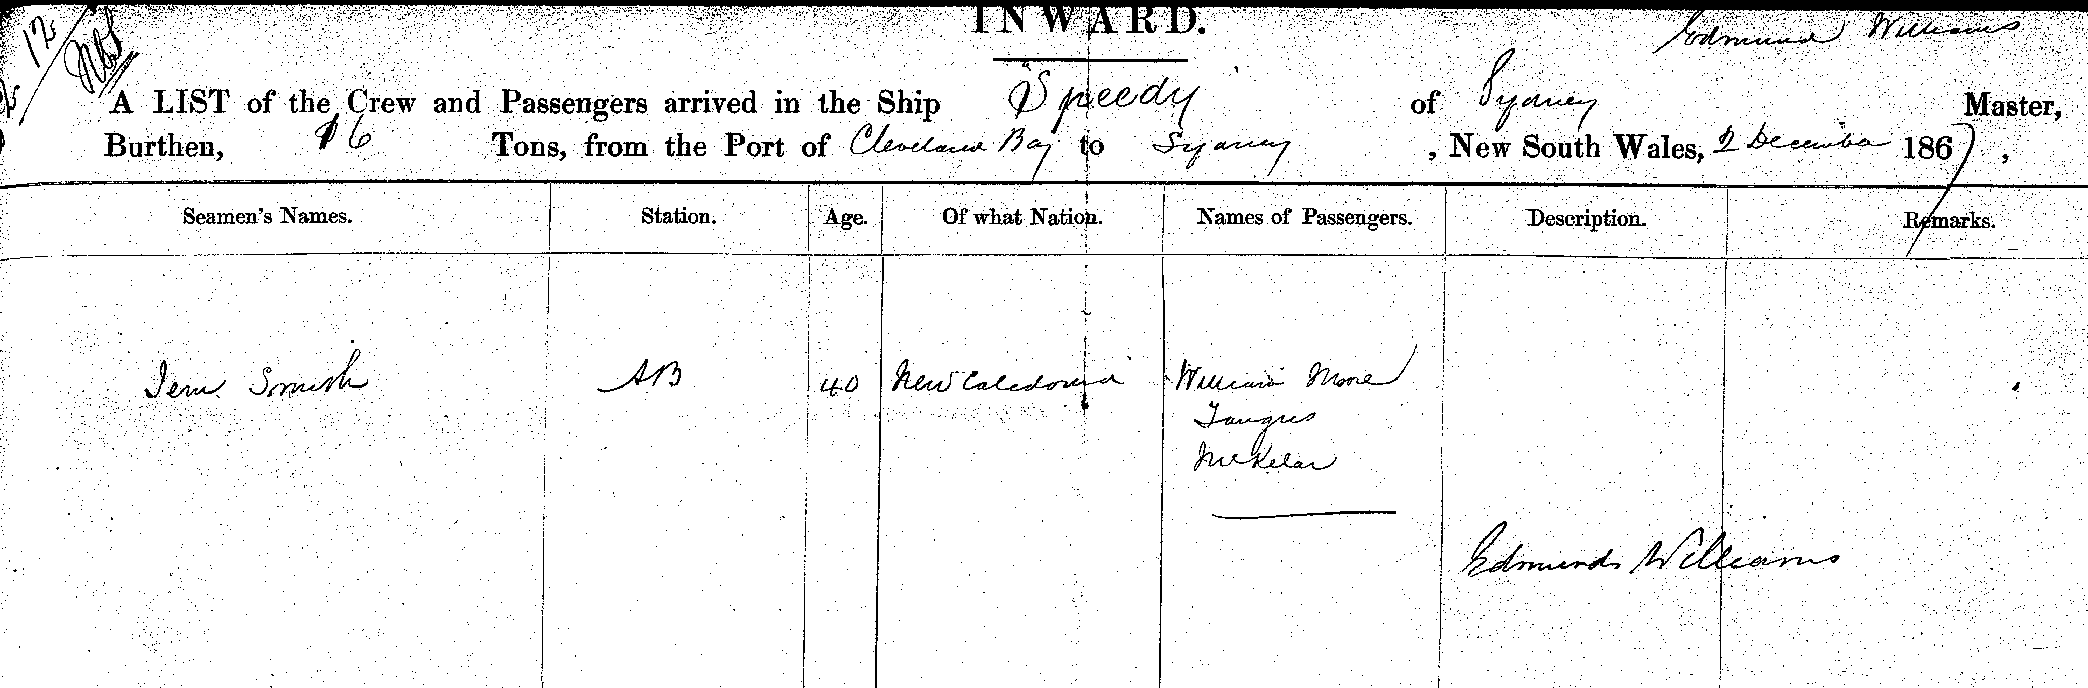 INWARD.
Edmund Williams
12
A LIST of the Crew and Passengers arrived in the Ship "Speedy of Sydney Master,
Burthen, 16 Tons, from the Port of Cleveland Bay to Sydney , New South Wales, 2 December 1867 ,
Seamen's Names. Station. Age. Of what Nation. Names of Passengers. Description. Remarks.
Jem Smith AB 40 New Caledonia William Moore
McKelar
Edmund Williams